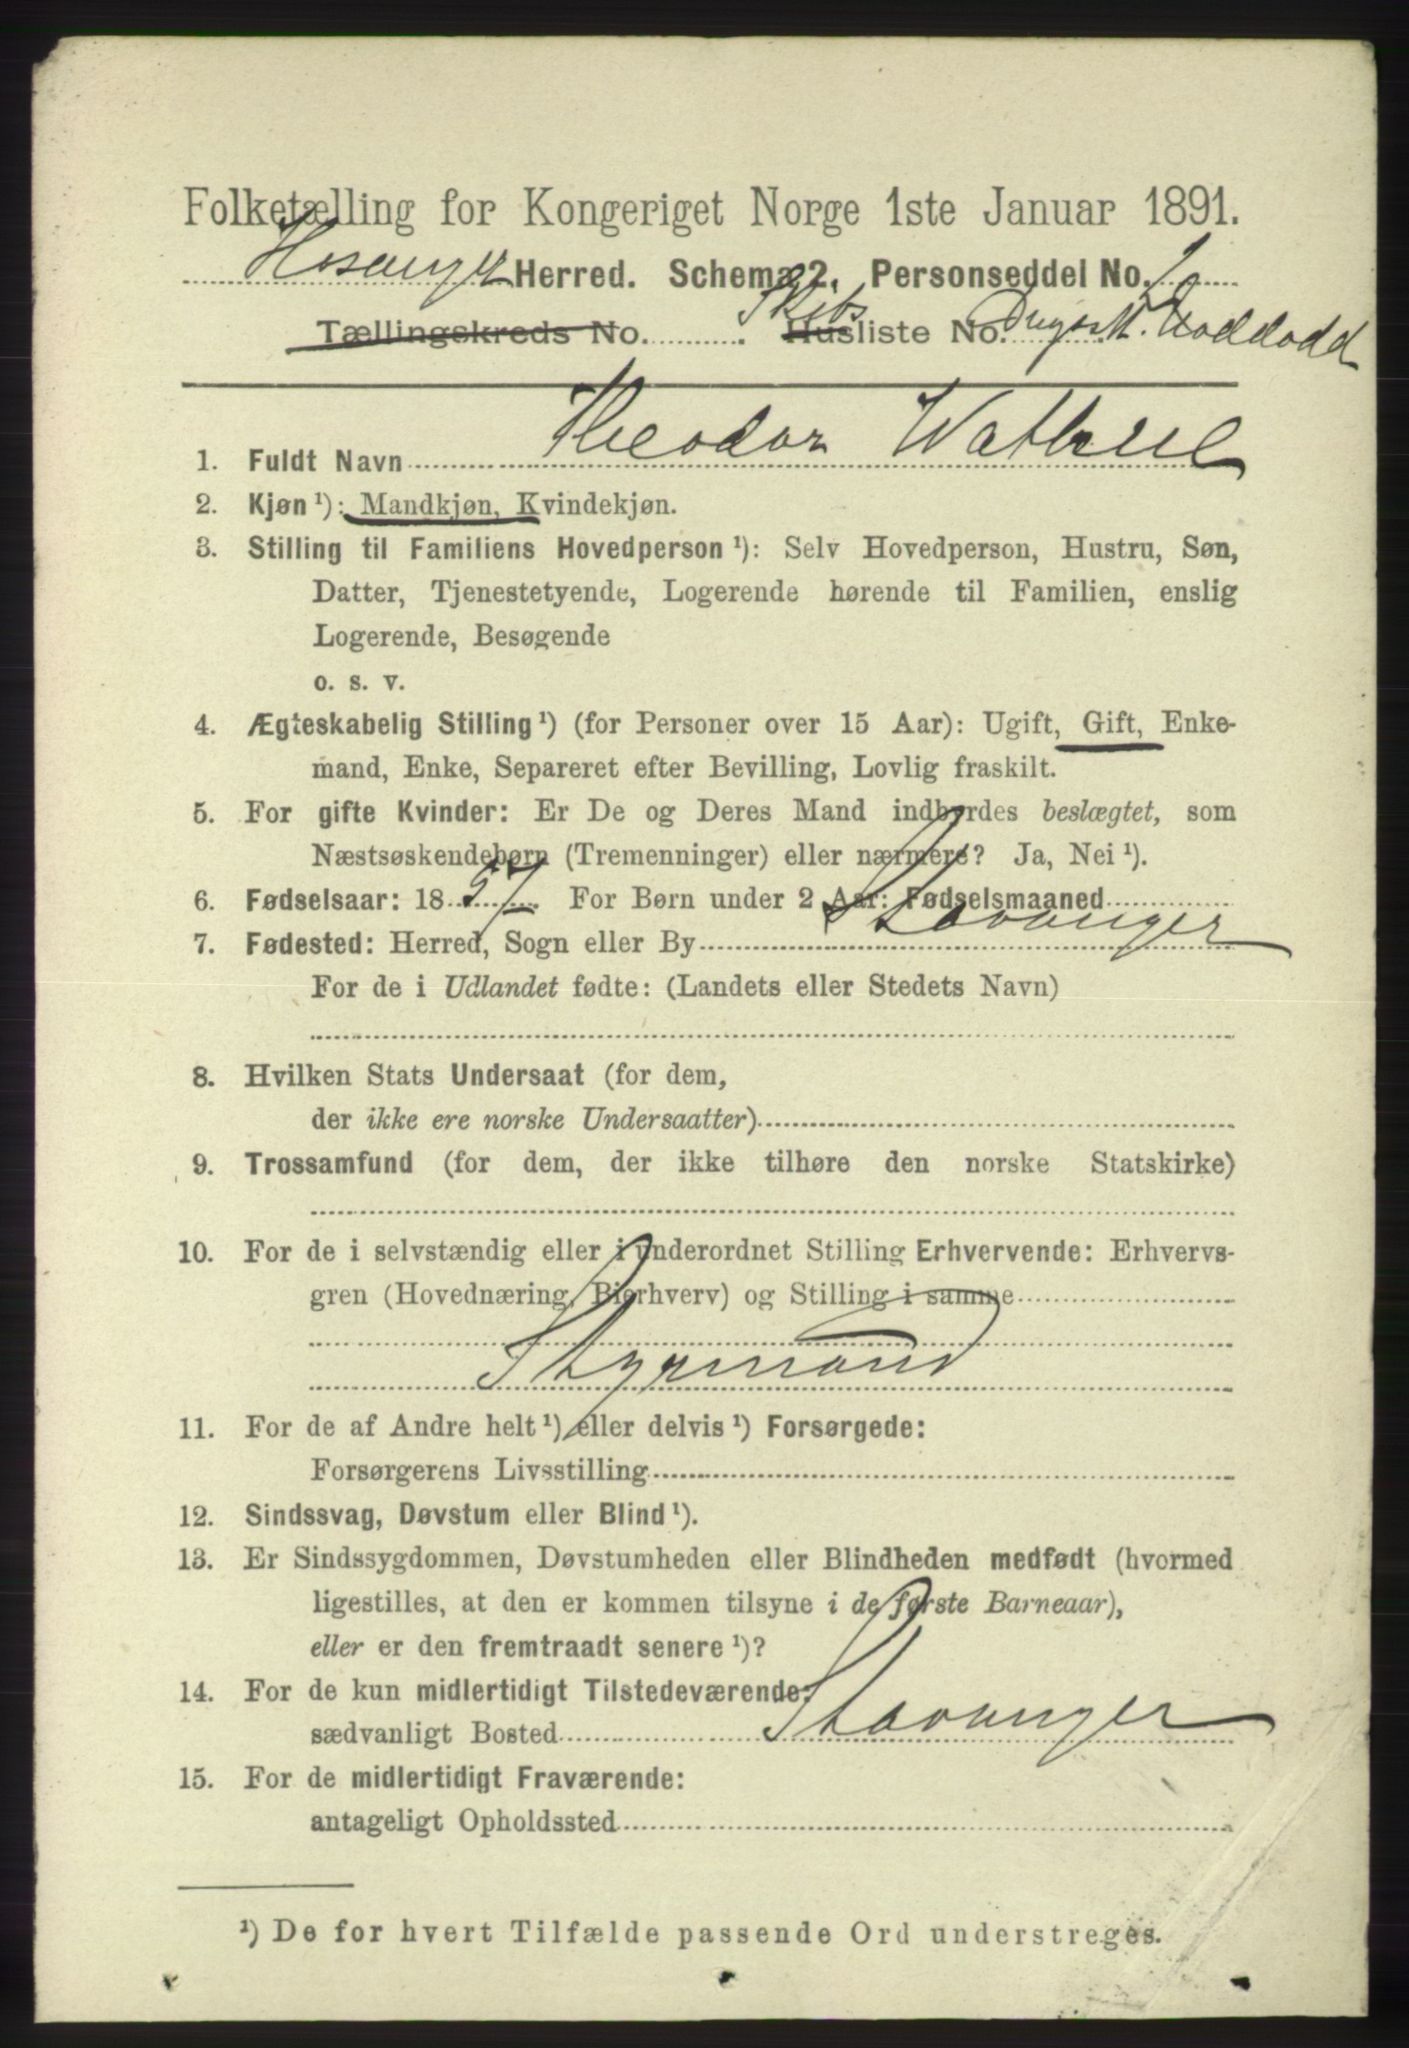 Folketælling for Kongeriget Norge 1ste Januar 1891.
Hosanger Herred. Schema 2. Personseddel No. 2
Tællingskreds No. . Skibs Husliste No. Naddodd
1. Fuldt Navn Theodor Wathne
2. Kjøn ¹): Mandkjøn, Kvindekjøn.
3. Stilling til Familiens Hovedperson ¹): Selv Hovedperson, Hustru, Søn,
Datter, Tjenestetyende, Logerende hørende til Familien, enslig
Logerende, Besøgende
o. s. v.
4. Ægteskabelig Stilling ¹) (for Personer over 15 Aar): Ugift, Gift, Enke-
mand, Enke, Separeret efter Bevilling, Lovlig fraskilt.
5. For gifte Kvinder: Er De og Deres Mand indbyrdes beslægtet, som
Næstsøskendebørn (Tremenninger) eller nærmere? Ja, Nei ¹).
6. Fødselsaar: 1857. For Børn under 2 Aar: Fødselsmaaned
7. Fødested: Herred, Sogn eller By Stavanger
For de i Udlandet fødte: (Landets eller Stedets Navn)
8. Hvilken Stats Undersaat (for dem,
der ikke ere norske Undersaatter)
9. Trossamfund (for dem, der ikke tilhøre den norske Statskirke)
10. For de i selvstændig eller i underordnet Stilling Erhvervende: Erhvervs-
gren (Hovednæring, Bierhverv) og Stilling i samme
Styrmand
11. For de af Andre helt ¹) eller delvis ¹) Forsørgede:
Forsørgerens Livsstilling
12. Sindssvag, Døvstum eller Blind ¹).
13. Er Sindssygdommen, Døvstumheden eller Blindheden medfødt (hvormed
ligestilles, at den er kommen tilsyne i de første Barneaar),
eller er den fremtraadt senere ¹)?
14. For de kun midlertidigt Tilstedeværende:
sædvanligt Bosted Stavanger
15. For de midlertidigt Fraværende:
antageligt Opholdssted
¹) De for hvert Tilfælde passende Ord understreges.